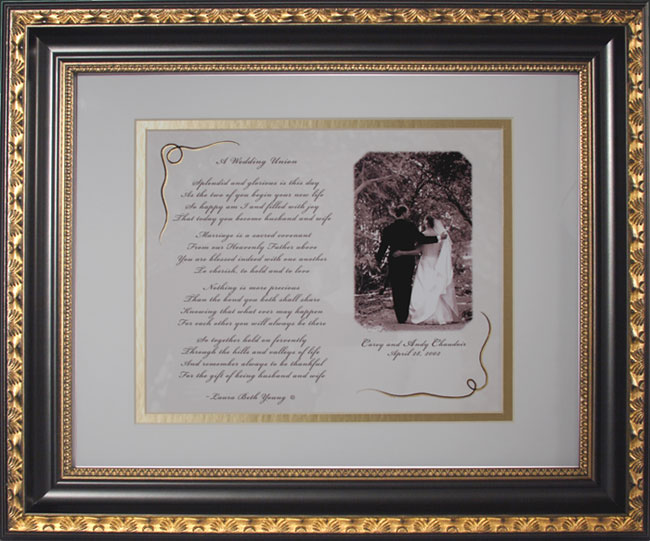 A Wedding Union
Splendid and glorious is this day
As the two of you begin your new life
So happy am I and filled with joy
That today you become husband and wife
Marriage is a sacred covenant
From our Heavenly Father above
You are blessed indeed with one another
To cherish, to hold and to love
Nothing is more precious
Than the bond you both shall share
Knowing that what ever may happen
For each other you will always be there
So together hold on fervently
Through the hills and valleys of life
And remember always to be thankful
For the gift of being husband and wife
~Laura Beth Young ©
and Andy
April 2002